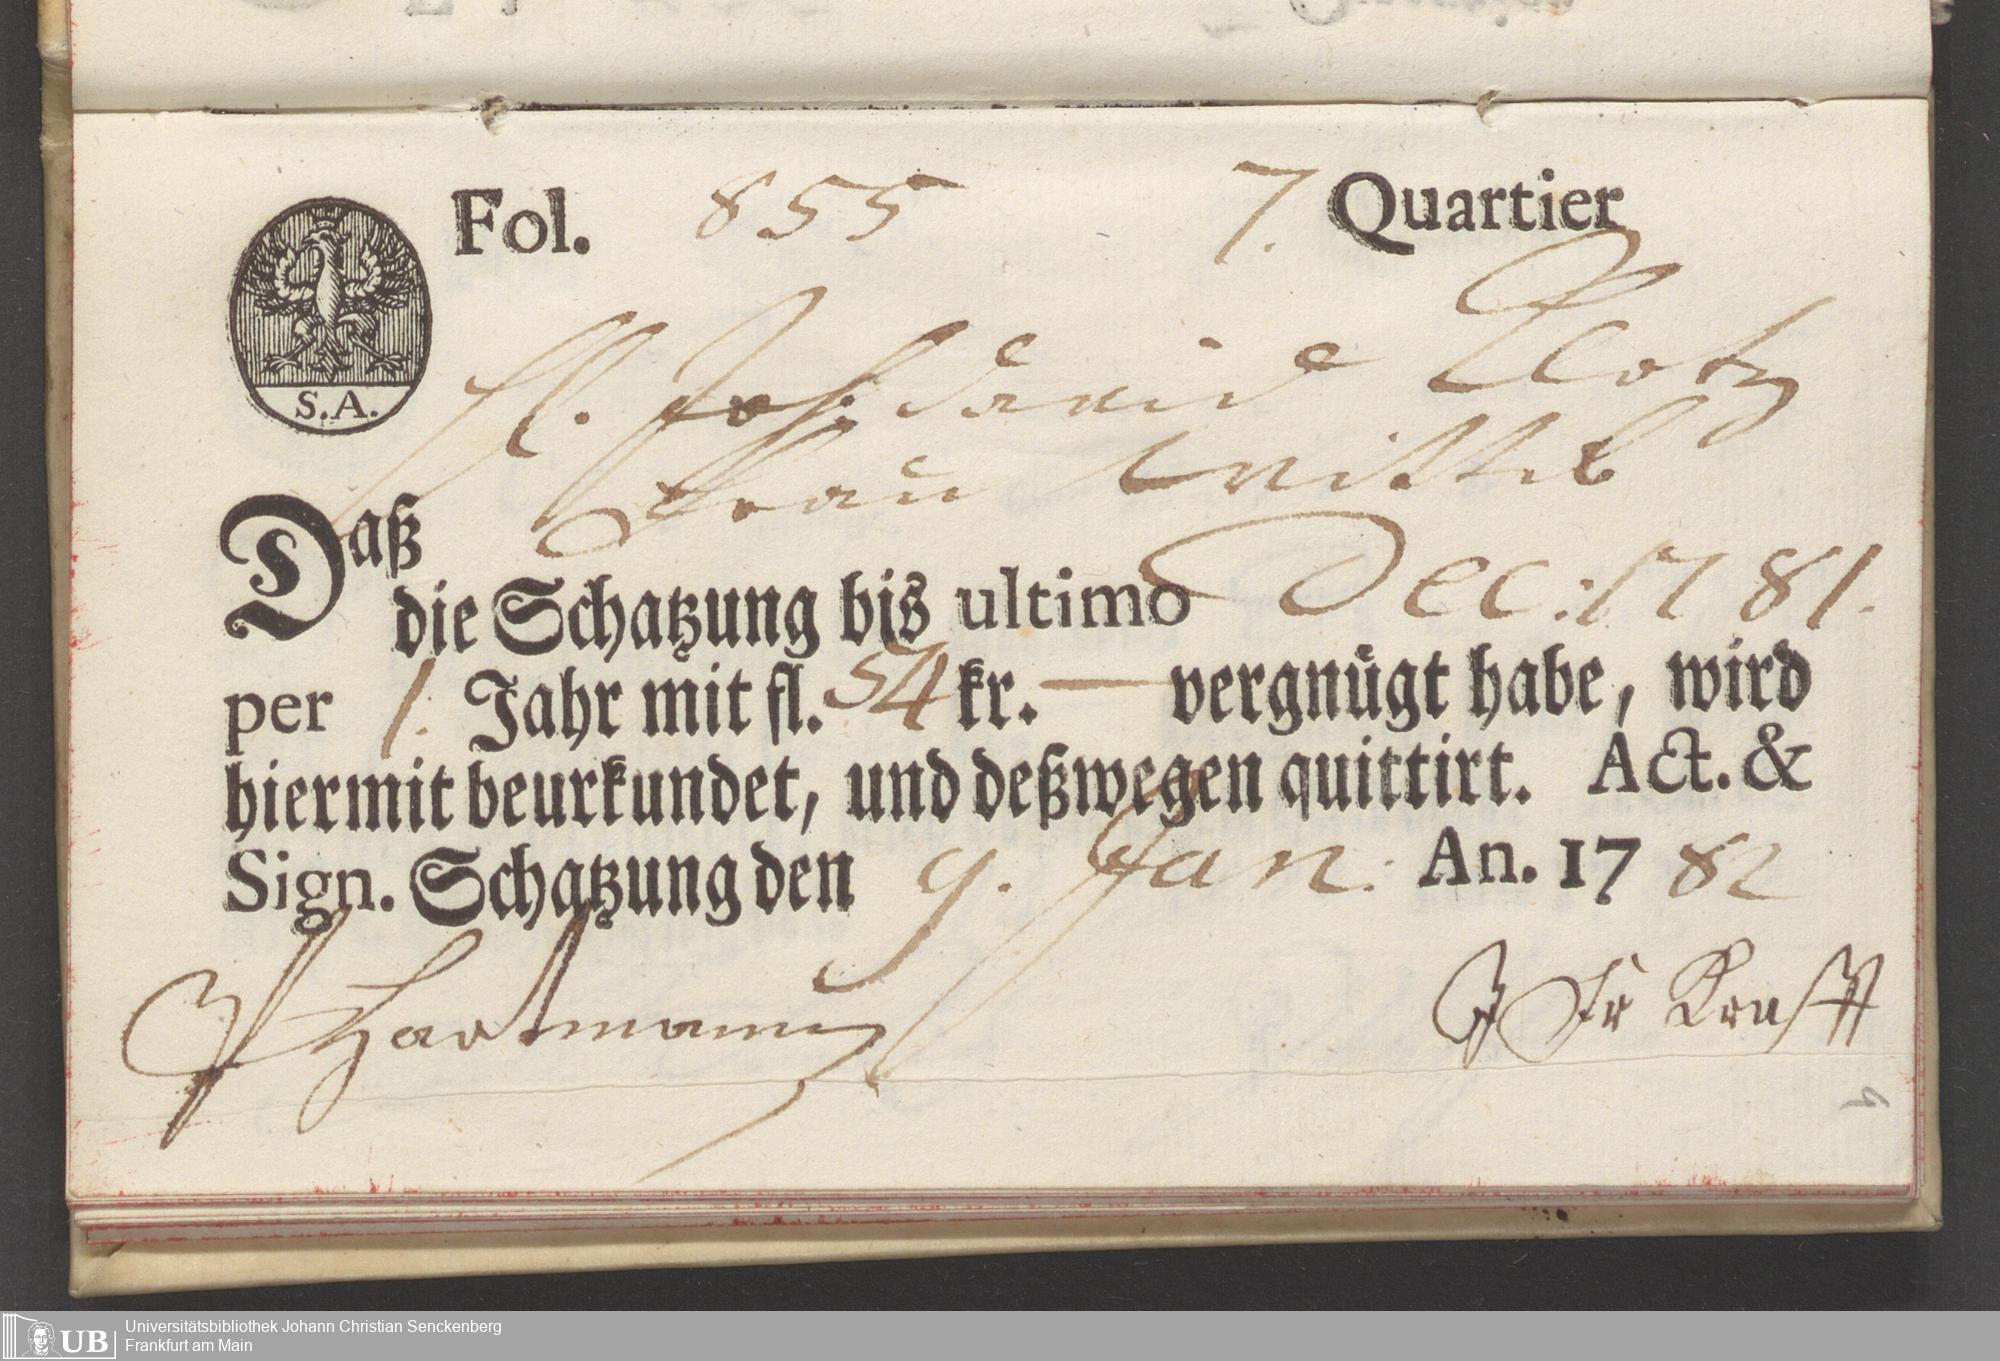 Fol. 855 7. Quartier
S. A.
H. Joh. David Clotz
Frau Wittib
Daß
die Schatzung bis ultimo Dec: 1781.
per 1. Jahr mit fl. 54 kr. — vergnügt habe, wird
hiermit beurkundet, und deßwegen quittirt. Act. &
Sign. Schatzung den 9. Jan: An. 1782
Hartmann
Kraft
UB
Universitätsbibliothek Johann Christian Senckenberg
Frankfurt am Main